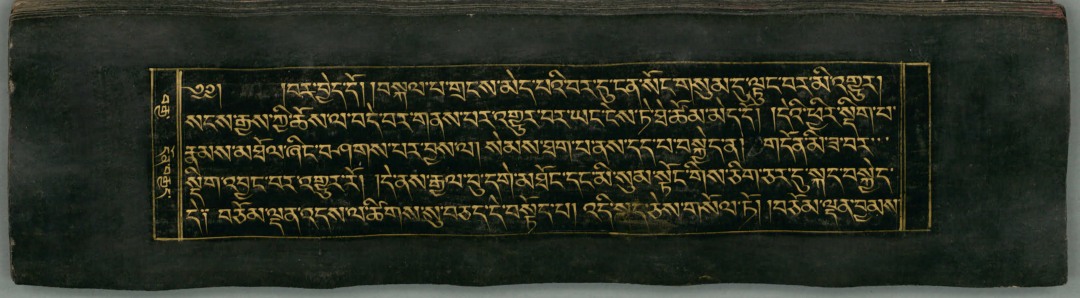 ༄༅། །བར་བྱེད་དོ། །བསྐལ་པ་གྲངས་མེད་པའི་བར་དུ་ངན་སོང་གསུམ་དུ་ལྟུང་བར་མི་འགྱུར།
སངས་རྒྱས་ཀྱི་ཆོས་ལ་བདེ་བར་གནས་པར་འགྱུར་བར་ཡང་ངེས་ཏེ་ཐེ་ཚོམ་མེད་དོ། །དེའི་ཕྱིར་སྡིག་པ་
རྣམས་མཐོལ་ཞིང་བཤགས་པར་བྱས་ལ། སེམས་ཐག་པ་ནས་དད་པ་བསྐྱེད་ན། གདོན་མི་ཟ་བར་
སྡིག་འབྱང་བར་འགྱུར་རོ། །དེ་ནས་རྒྱལ་བུ་དགེ་མཐོང་དང་མི་སུམ་སྟོང་གིས་ཅིག་ཅར་དུ་སྐད་བསྐྱེད་
དེ། བཅོམ་ལྡན་འདས་ལ་ཚིགས་སུ་བཅད་དེ་བསྟོད་པ། འདི་སྐད་ཅེས་གསོལ་ཏོ། །བཅོམ་ལྡན་བྱམས་